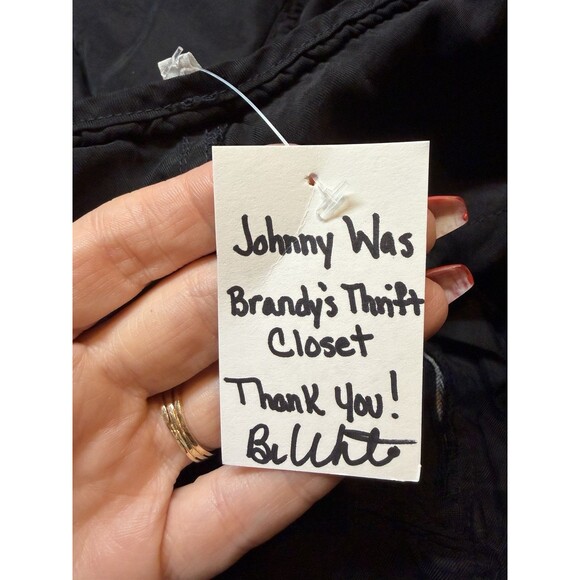 Johnny Was
Brandy's Thrift
Closet
Thank You!